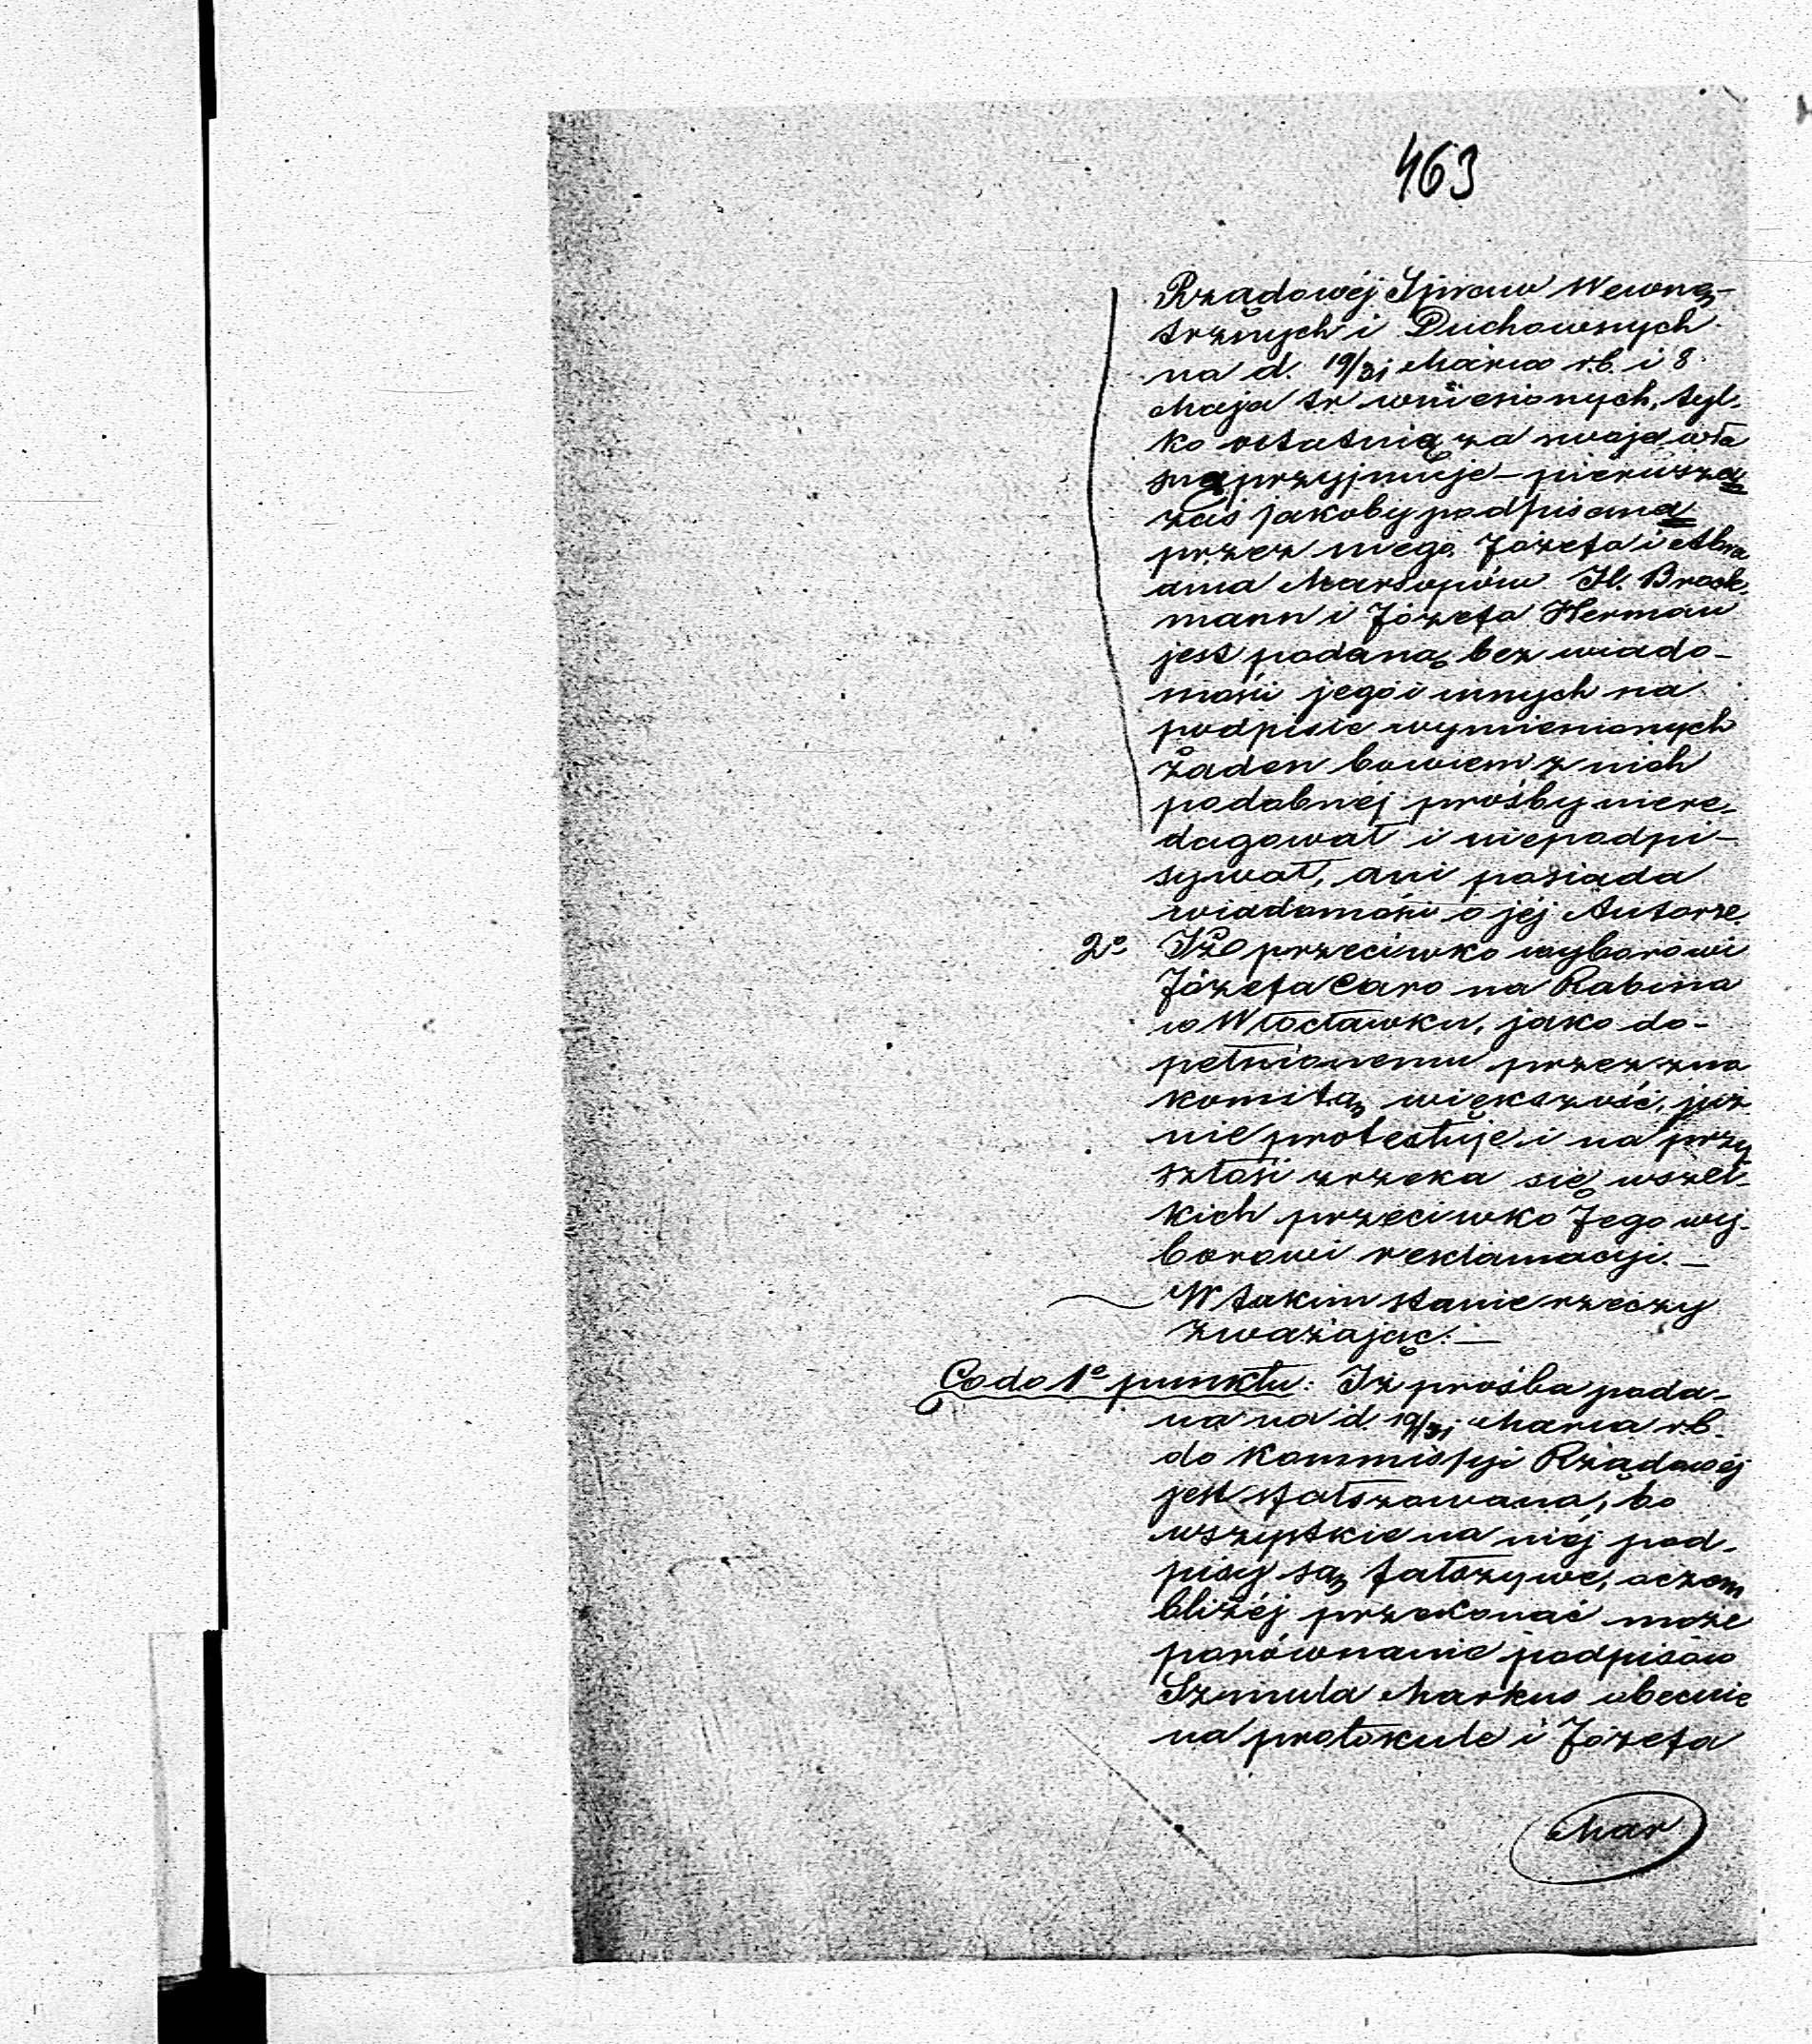 463
Rządowéj Spraw Wewnę-
trznych i Duchownych
na d. 19/31 Marca r.b. i 8
Maja tr wniesionych, tyl-
ko ostatnią za swoją wła
sną przyjmuje – pierwszą
zaś jakoby podpisaną
przez niego Józefa i Abra
ama Marsopów H. Brock-
mann i Józefa Herman
jest podaną bez wiado-
mości jego i innych na
podpisie wymienionych
Żaden bowiem z nich
podobnéj prośby niere-
dagował i niepodpi-
sywał, ani posiada
wiadomości o jéj Autorze
2o Iż przeciwko wyborowi
Józefa Caro na Rabina
w Włocławku, jako do-
pełnionemu przez zna
komitą większość, już
nie protestuje i na przy
szłość zrzeka się wszel-
kich przeciwko Jego wy-
borowi reklamacyi. –
W takim stanie rzeczy
Zważając: –
Co do 1o punktu: Iż prośba poda-
na na d. 19/31 Marca r.b.
do Kommissyi Rządowéj
jest sfałszowana, bo
wszystkie na niéj pod-
pisy są fałszywe, o czem
bliżéj przekonać może
porównanie podpisów
Szmula Markus obecnie
na protokule i Józefa
Mar